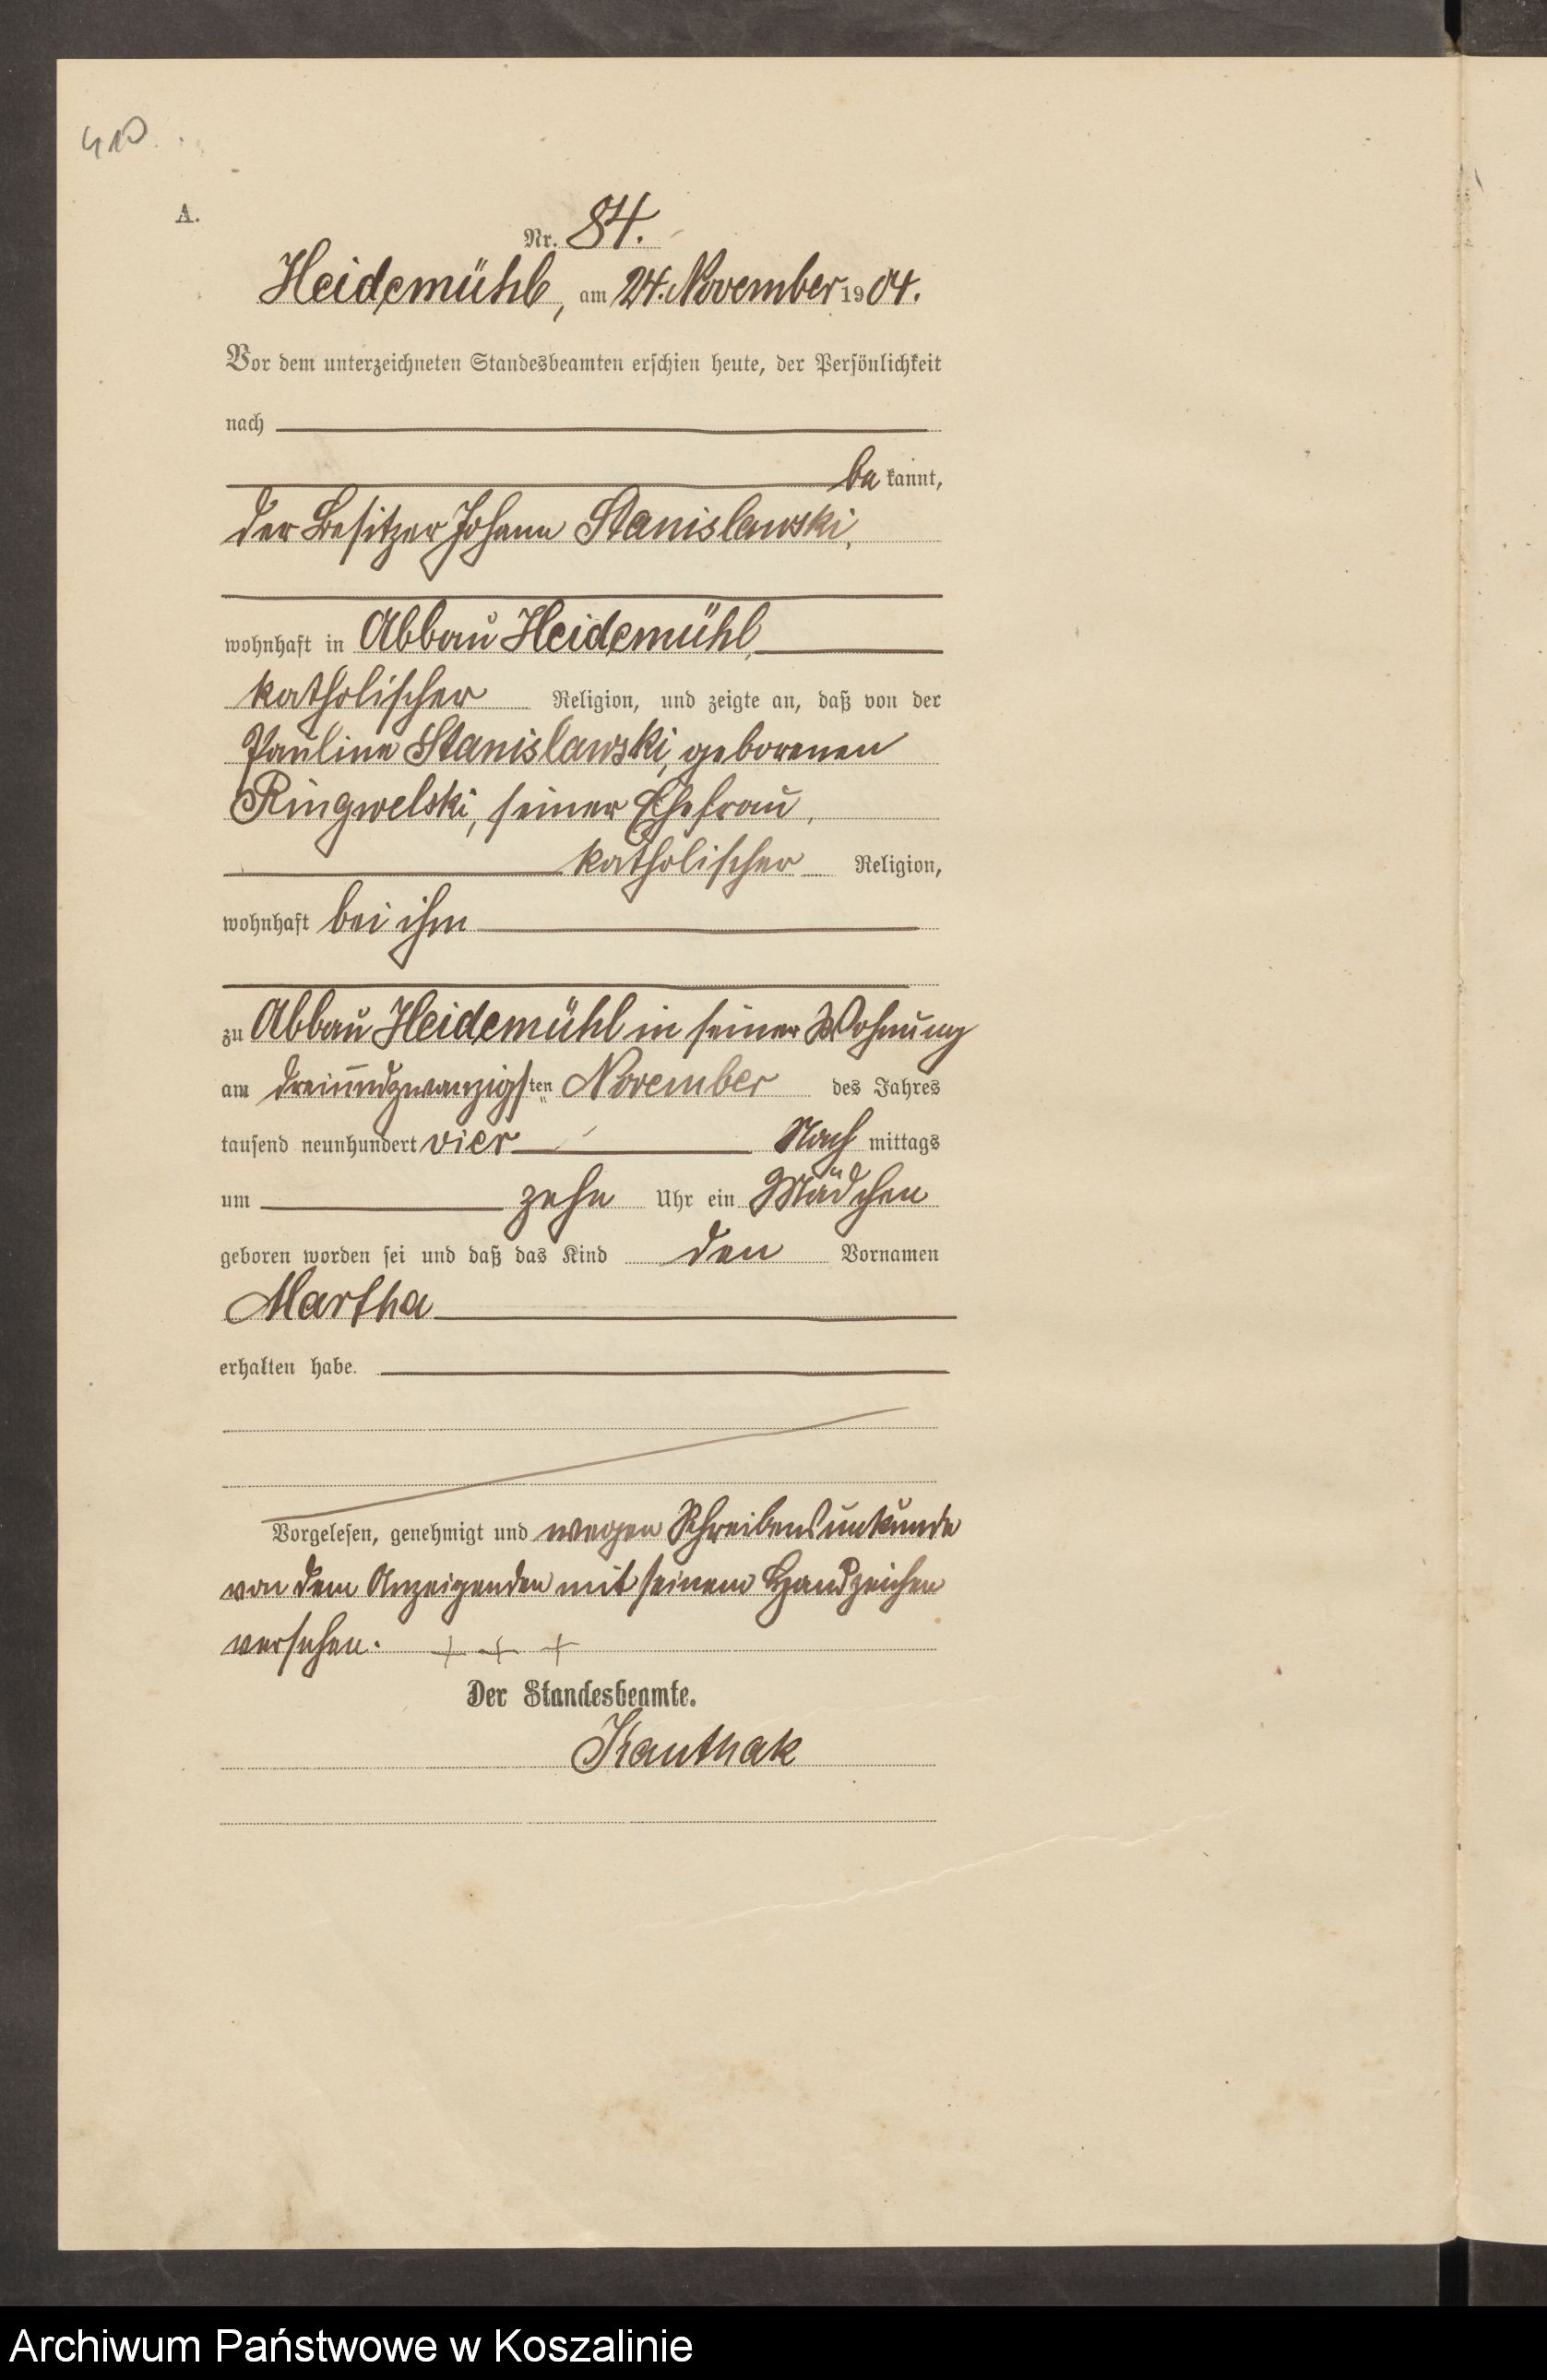 A.
Nr. 84.
Heidemühl, am 24. November 1904.
Vor dem unterzeichneten Standesbeamten erschien heute, der Persönlichkeit
nach
bekannt,
der Besitzer Johann Stanislawski,
wohnhaft in Abbau Heidemühl,
katholischer Religion, und zeigte an, daß von der
Pauline Stanislawski, geborenen
Ringwelski, seiner Ehefrau,
katholischer Religion,
wohnhaft bei ihm
zu Abbau Heidemühl in seiner Wohnung
am dreiundzwanzigsten November des Jahres
tausend neunhundert vier Nachmittags
um zehn Uhr ein Mädchen
geboren worden sei und daß das Kind den Vornamen
Martha
erhalten habe.
Vorgelesen, genehmigt und wegen Schreibensunkunde
von dem Anzeigenden mit seinem Handzeichen
versehen. + + +
Der Standesbeamte.
Kanthak
Archiwum Państwowe w Koszalinie